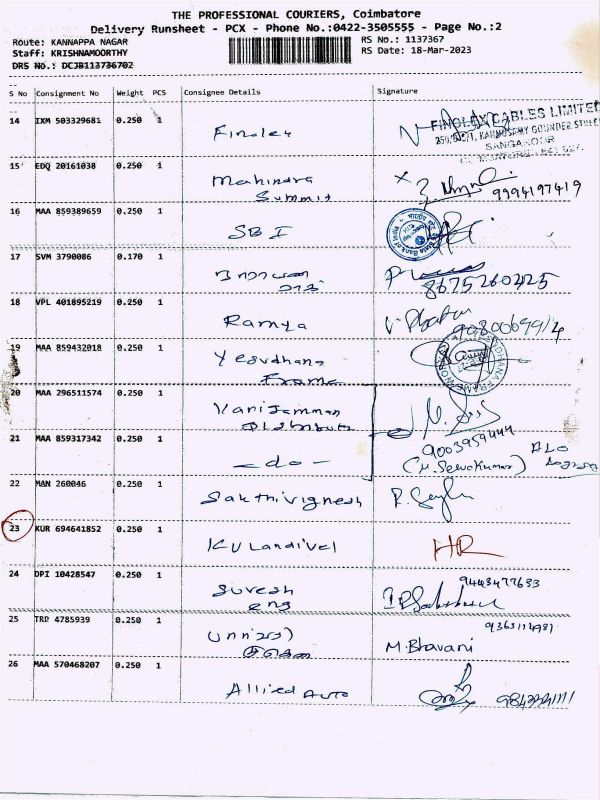 THE PROFESSIONAL COURIERS, Coimbatore
Delivery Runsheet - PCX - Phone No.:0422-3505555 - Page No.:2
Route: KANNAPPA NAGAR RS No.: 1137367
Staff: KRISHNAMOORTHY RS Date: 18-Mar-2023
DRS No.: DCJB113736702
S No Consignment No Weight PCS Consignee Details Signature
14 IXM 503329681 0.250 1 Finolex FINOLEX CABLES LIMITED
KANNUSAMY GOUNDER STREET
SANGANOOR
15 EDQ 20161038 0.250 1 Mahindra
Summit 9994197419
16 MAA 859389659 0.250 1 SBI
17 SVM 3790086 0.170 1
8675260225
18 VPL 401895219 0.250 1 Ramya
19 MAA 859432018 0.250 1 Yesvdhana
Frame
20 MAA 296511574 0.250 1 Vanijamman
Distributer
9003959444
21 MAA 859317342 0.250 1 -do- (M. Selvakumar)
22 MAN 260046 0.250 1 Sakthivignesh
23 KUR 694641852 0.250 1 Kulandivel HR
24 DPI 10428547 0.250 1 Suresh 9443477633
eng
25 TRP 4785939 0.250 1 M. Bhavani
26 MAA 570468207 0.250 1 Allied Auto